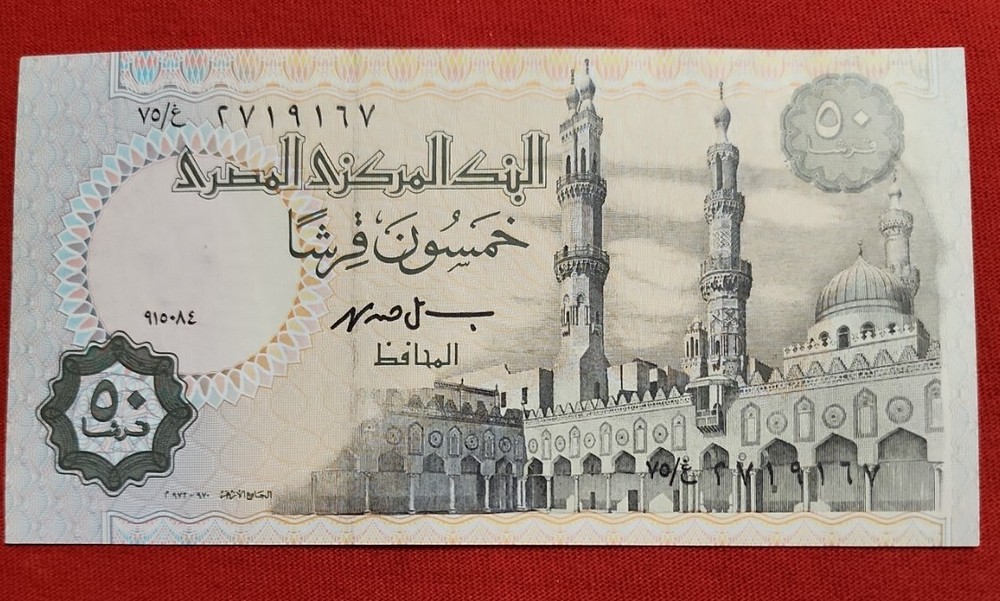 ٧٥/غ ٢٧١٩١٦٧
٥٠
قرشا
البنك المركزى المصرى
خَمسُونَ قِرشًا
٩١٥٠٨٤
المحافظ
٥٠
قرشا
٧٥/غ ٢٧١٩١٦٧
الجامع الأزهر ٩٧٠-٩٧٢ م